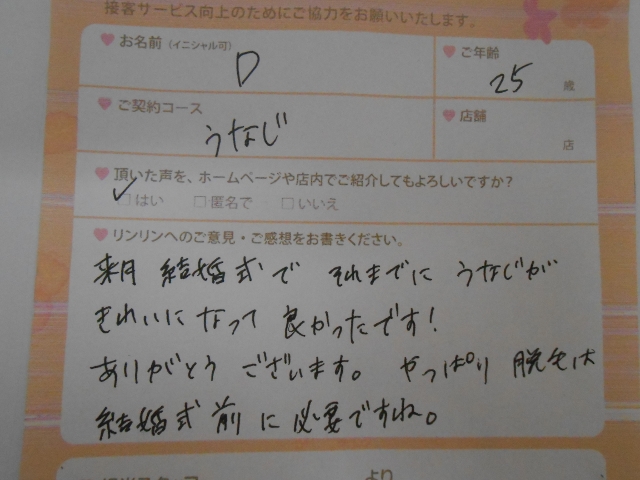 接客サービス向上のためにご協力をお願いいたします。
お名前（イニシャル可）
D
ご年齢
25 歳
ご契約コース
うなじ
店舗
店
頂いた声を、ホームページや店内でご紹介してもよろしいですか？
はい 匿名で いいえ
リンリンへのご意見・ご感想をお書きください。
来月 結婚式で それまでに うなじが
きれいになって 良かったです！
ありがとう ございます。 やっぱり 脱毛は
結婚式 前に必要ですね。
より